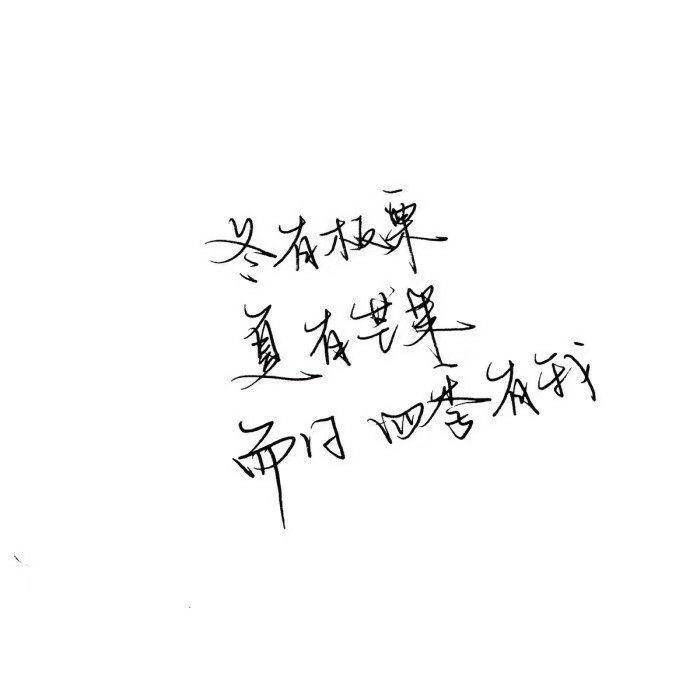 冬有板栗
夏有芒菓
而 四季有我